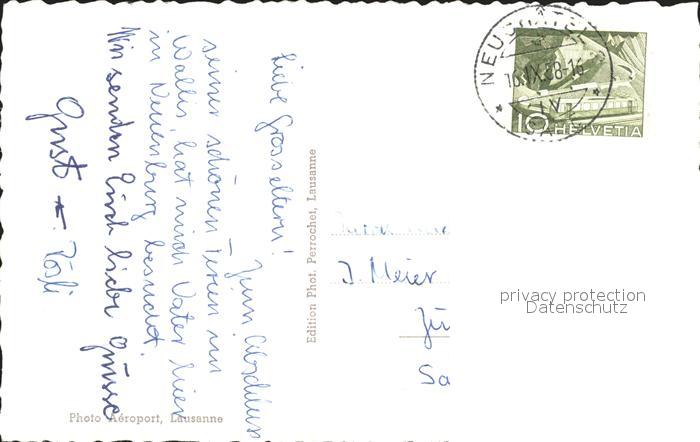 Liebe Grosseltern!
Zum Abschluss
seiner schönen Ferien im
Wallis, hat mich Vater hier
in Neuenburg besucht.
Wir senden Euch liebe Grüsse
Gust + Rösli
Photo Aéroport, Lausanne
Edition Phot. Perrochet, Lausanne
J. Meier
Zü
Sa
NEUCHATEL
10 HELVETIA
privacy protection
Datenschutz